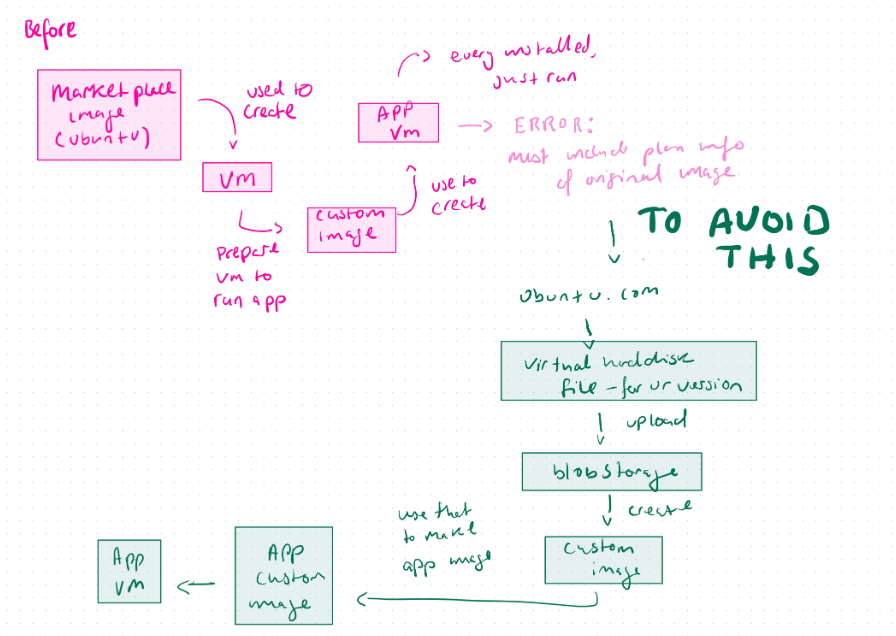 Before
Marketplace
image
(ubuntu)
used to
create
VM
Prepare
vm to
run app
custom
image
use to
create
APP
Vm
every installed,
just run
ERROR:
must include plan info
of original image
TO AVOID
THIS
ubuntu.com
virtual harddisk
file - for ur version
upload
blob storage
create
custom
image
use that
to make
app image
App
custom
image
App
vm